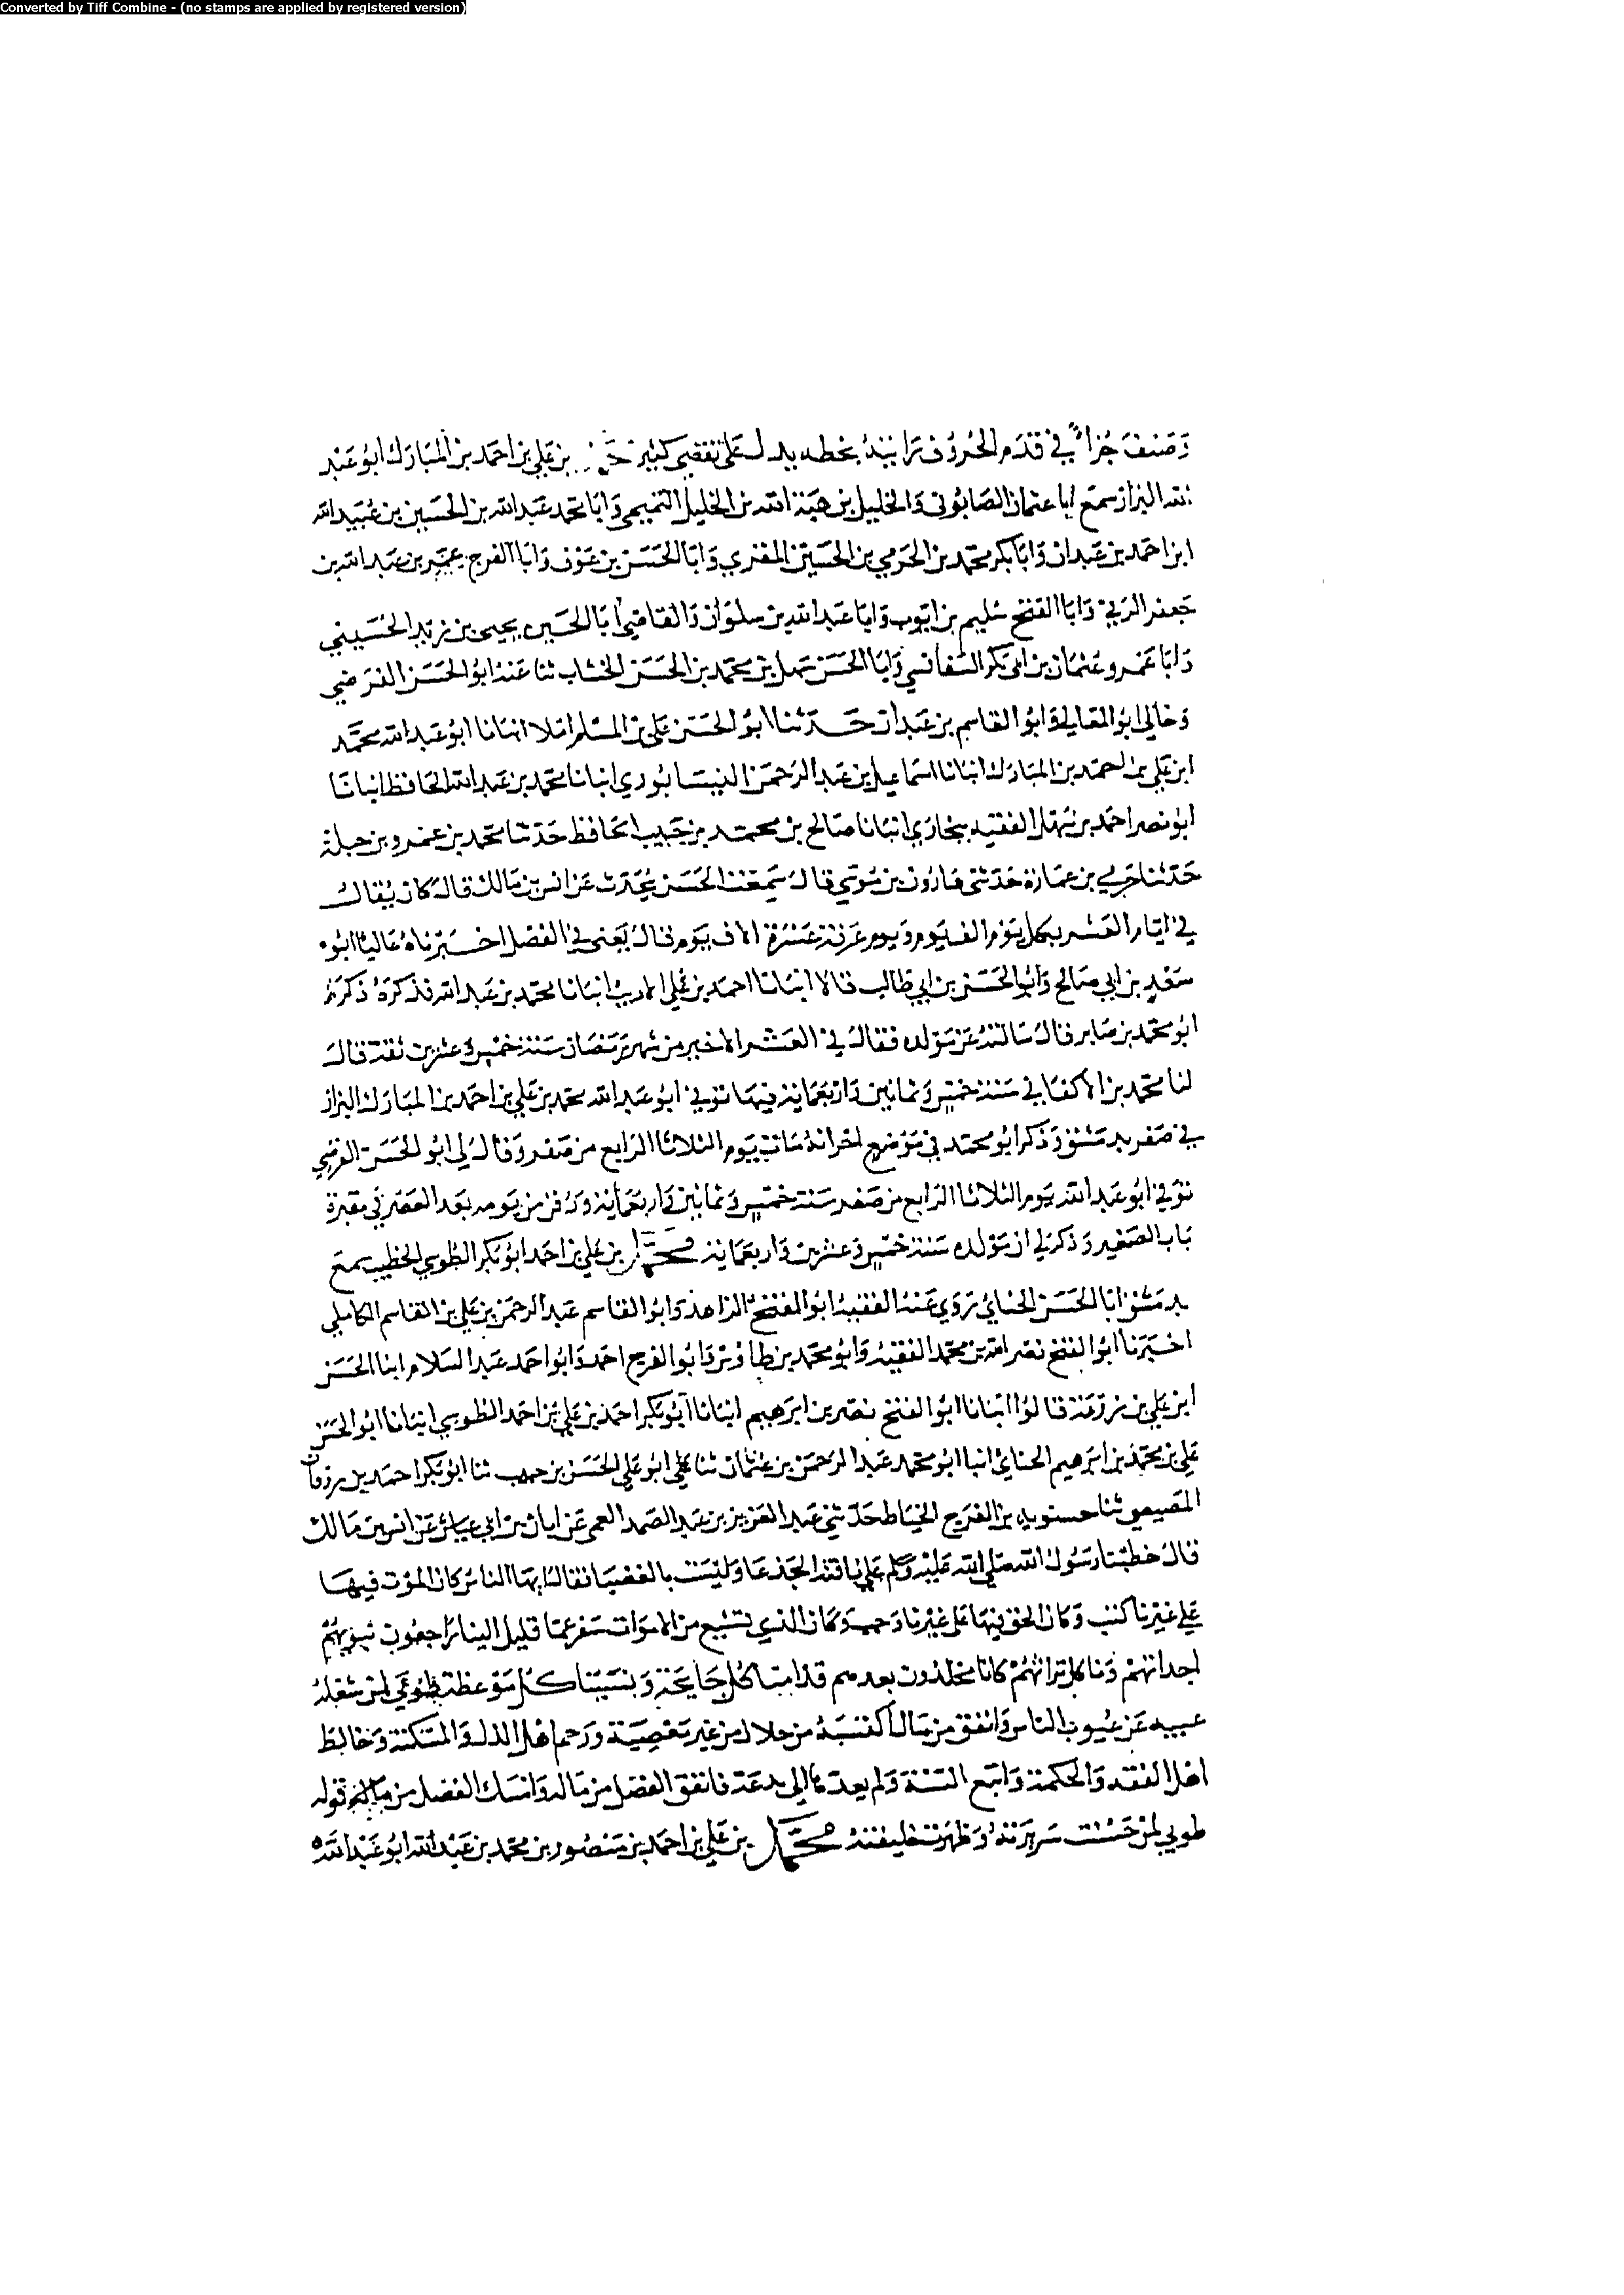 Converted by Tiff Combine - (no stamps are applied by registered version)
وصنف جزاً في قدم الحروف رايته بخطه يدل على تقصير كثير بن علي بن احمد بن المبارك ابو عبد
الله البزاز سمع ابا عثمان الصابوني والخليل بن هبة الله بن الخليل التميمي وابا محمد عبد الله بن الحسين بن عبيد الله
ابن احمد بن عبدان وابا بكر محمد بن الحرمي بن الحسين المقري وابا الحسن بن عوف وابا الفرج عبد الله بن
جعفر وابا الفتح سليم بن ايوب وابا عبد الله بن سلوان والقاضي ابا الحسين يحيى بن زيد الحسيني
وابا عمرو عثمان بن ابي بكر السفاقسي وابا الحسن سهل بن محمد بن الحسن الخشاب ثنا عنه ابو الحسن الفرضي
وخالي ابو المعالي وابو القاسم بن عبدان حدثنا ابو الحسن علي بن المسلم املا انبانا ابو عبد الله محمد
ابن علي بن احمد بن المبارك انبانا اسماعيل بن عبد الرحمن النيسابوري انبانا محمد بن عبد الله الحافظ انبانا
ابو نصر احمد بن سهل الفقيه ببخارى انبانا صالح بن محمد بن حبيب الحافظ حدثنا محمد بن عمرو بن جبلة
حدثنا حرمي بن عمارة حدثني هارون بن موسى قال سمعت الحسن يحدث عن انس بن مالك قال كان يقال
في ايام العشر بكل يوم الف يوم ويوم عرفة عشرة الاف يوم قال يعني في الفضل اخبرناه عاليا ابو
سعد بن ابي صالح وابو الحسن بن ابي طالب قالا انبانا احمد بن علي الاديب انبانا محمد بن عبد الله فذكره ذكر
ابو محمد بن صابر قال سالته عن مولده فقال في العشر الاخير من شهر رمضان سنة خمس وعشرين ثقة قال
لنا محمد بن الاكفاني سنة خمس وثمانين واربعماية فيها توفي ابو عبد الله محمد بن علي بن احمد بن المبارك البزاز
في صفر بدمشق وذكر ابو محمد في موضع اخر انه مات يوم الثلاثا الرابع من صفر وقال لي ابو الحسن الفرضي
توفي ابو عبد الله يوم الثلاثا الرابع من صفر سنة خمس وثمانين واربعماية ودفن من يومه بعد العصر في مقبرة
باب الصغير وذكر لي ان مولده سنة خمس وعشرين واربعماية محمد بن علي بن احمد ابو بكر الطوسي الخطيب سمع
بدمشق ابا الحسن الحنائي روى عنه الفقيه ابو الفتح الزاهد وابو القاسم عبد الرحمن بن علي بن القاسم الكاملي
اخبرنا ابو الفتح نصر الله بن محمد الفقيه وابو محمد بن طاوس وابو الفرج احمد وابو احمد عبد السلام ابنا الحسن
ابن علي بن زرعة قالوا انبانا ابو الفتح نصر بن ابرهيم انبانا ابو بكر احمد بن علي بن احمد الطوسي انبانا ابو الحسن
علي بن محمد بن ابرهيم الحنائي انبا ابو محمد عبد الرحمن بن عثمان ثنا علي ابو علي الحسن بن حبيب ثنا ابو بكر احمد بن
المصيصي ثنا حسنويه بن الفرج الخياط حدثني عبد العزيز بن عبد الصمد العمي عن ابان بن ابي عياش عن انس بن مالك
قال خطبنا رسول الله صلى الله عليه وسلم على ناقته الجدعا وليست بالعضبا فقال ايها الناس كان الموت فيها
على غيرنا كتب وكان الحق فيها على غيرنا وجب وكان الذي نشيع من الاموات سفر عما قليل الينا راجعون نبويهم
اجداثهم وناكل تراثهم كانا مخلدون بعدهم قد امنا كل جايحة ونسينا كل موعظة طوبى لمن شغله
عيبه عن عيوب الناس وانفق من مال اكتسبه من حلال من غير معصية ورحم اهل الذل والمسكنة وخالط
اهل الفقه والحكمة واتبع السنة ولم يعدها الى بدعة فانفق الفضل من ماله وامسك الفضل من قوله
طوبى لمن حسنت سريرته وطهرت خليقته محمد بن علي بن احمد بن منصور بن محمد بن عبد الله ابو عبد الله